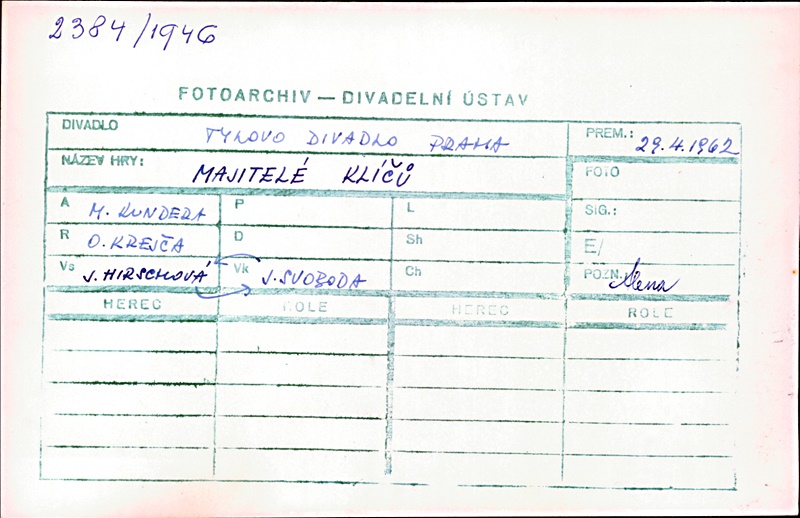 2384/1946
FOTOARCHIV — DIVADELNÍ ÚSTAV
DIVADLO TYLOVO DIVADLO PRAHA PREM.: 29.4.1962
NÁZEV HRY: MAJITELÉ KLÍČŮ FOTO
A M. KUNDERA P L SIG.:
R O. KREJČA D Sh E/
Vs J. HIRSCHOVÁ Vk J. SVOBODA Ch POZN.
HEREC ROLE HEREC ROLE